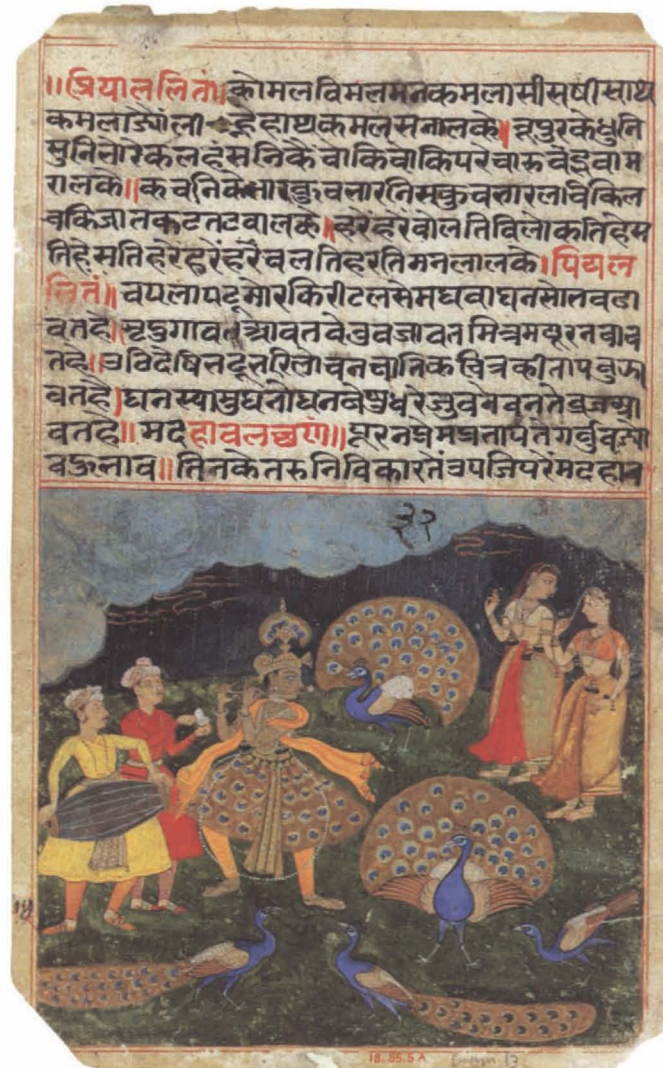 ॥प्रियाललिता॥ कोमलविमलमनकमलासीसषीसाथ
कमलाज्योंली-न्हेहाथकमलसनालके॥ नूपुरकेधुनि
सुनिभोरेकलहंसनिकेचोंकिचोंकिपरेचारुचेटुवाम
रालके॥ कचनिकेभारकुचभारनिसकुचभारलचिकिल
चकिजातकटतटवालके॥ हरेंहरेंवोलतिविलोकतिहस
तिहेसतिहरेंहरेंहरेंचलतिहरतिमनलालके॥ पियल
लितं॥ चपलापटमोरकिरीटलसेमघवाघनसोभवढा
वतहै॥ मृदुगावतआवतवेनुवजावतमित्रमयूरनचाव
तहै॥ उठिदेषिभटूभरिलोचनचातिकचित्रकीतापवुझा
वतहै॥ घनस्यामघनेघनवेषुधरेजुवनेवनतेव्रजआ
वतहै॥ मदहावलछणं॥ पूरनप्रेमप्रतापतेगर्वुवढ्यो
वहुभाव॥ तिनकेतरुनिविकारतेंउपजिपरेंमदहाव
३२
18.85.5 A